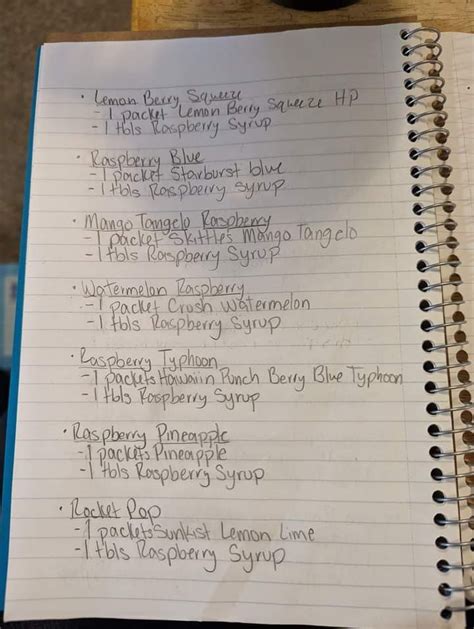 · Lemon Berry Squeeze
- 1 packet Lemon Berry Squeeze HP
- 1 tbls Raspberry Syrup
· Raspberry Blue
- 1 packet Starburst blue
- 1 tbls Raspberry Syrup
· Mango Tangelo Raspberry
- 1 packet Skittles Mango Tangelo
- 1 tbls Raspberry Syrup
· Watermelon Raspberry
- 1 packet Crush Watermelon
- 1 tbls Raspberry Syrup
· Raspberry Typhoon
- 1 packets Hawaiin Punch Berry Blue Typhoon
- 1 tbls Raspberry Syrup
· Raspberry Pineapple
- 1 packets Pineapple
- 1 tbls Raspberry Syrup
· Rocket Pop
- 1 packets Sunkist Lemon Lime
- 1 tbls Raspberry Syrup